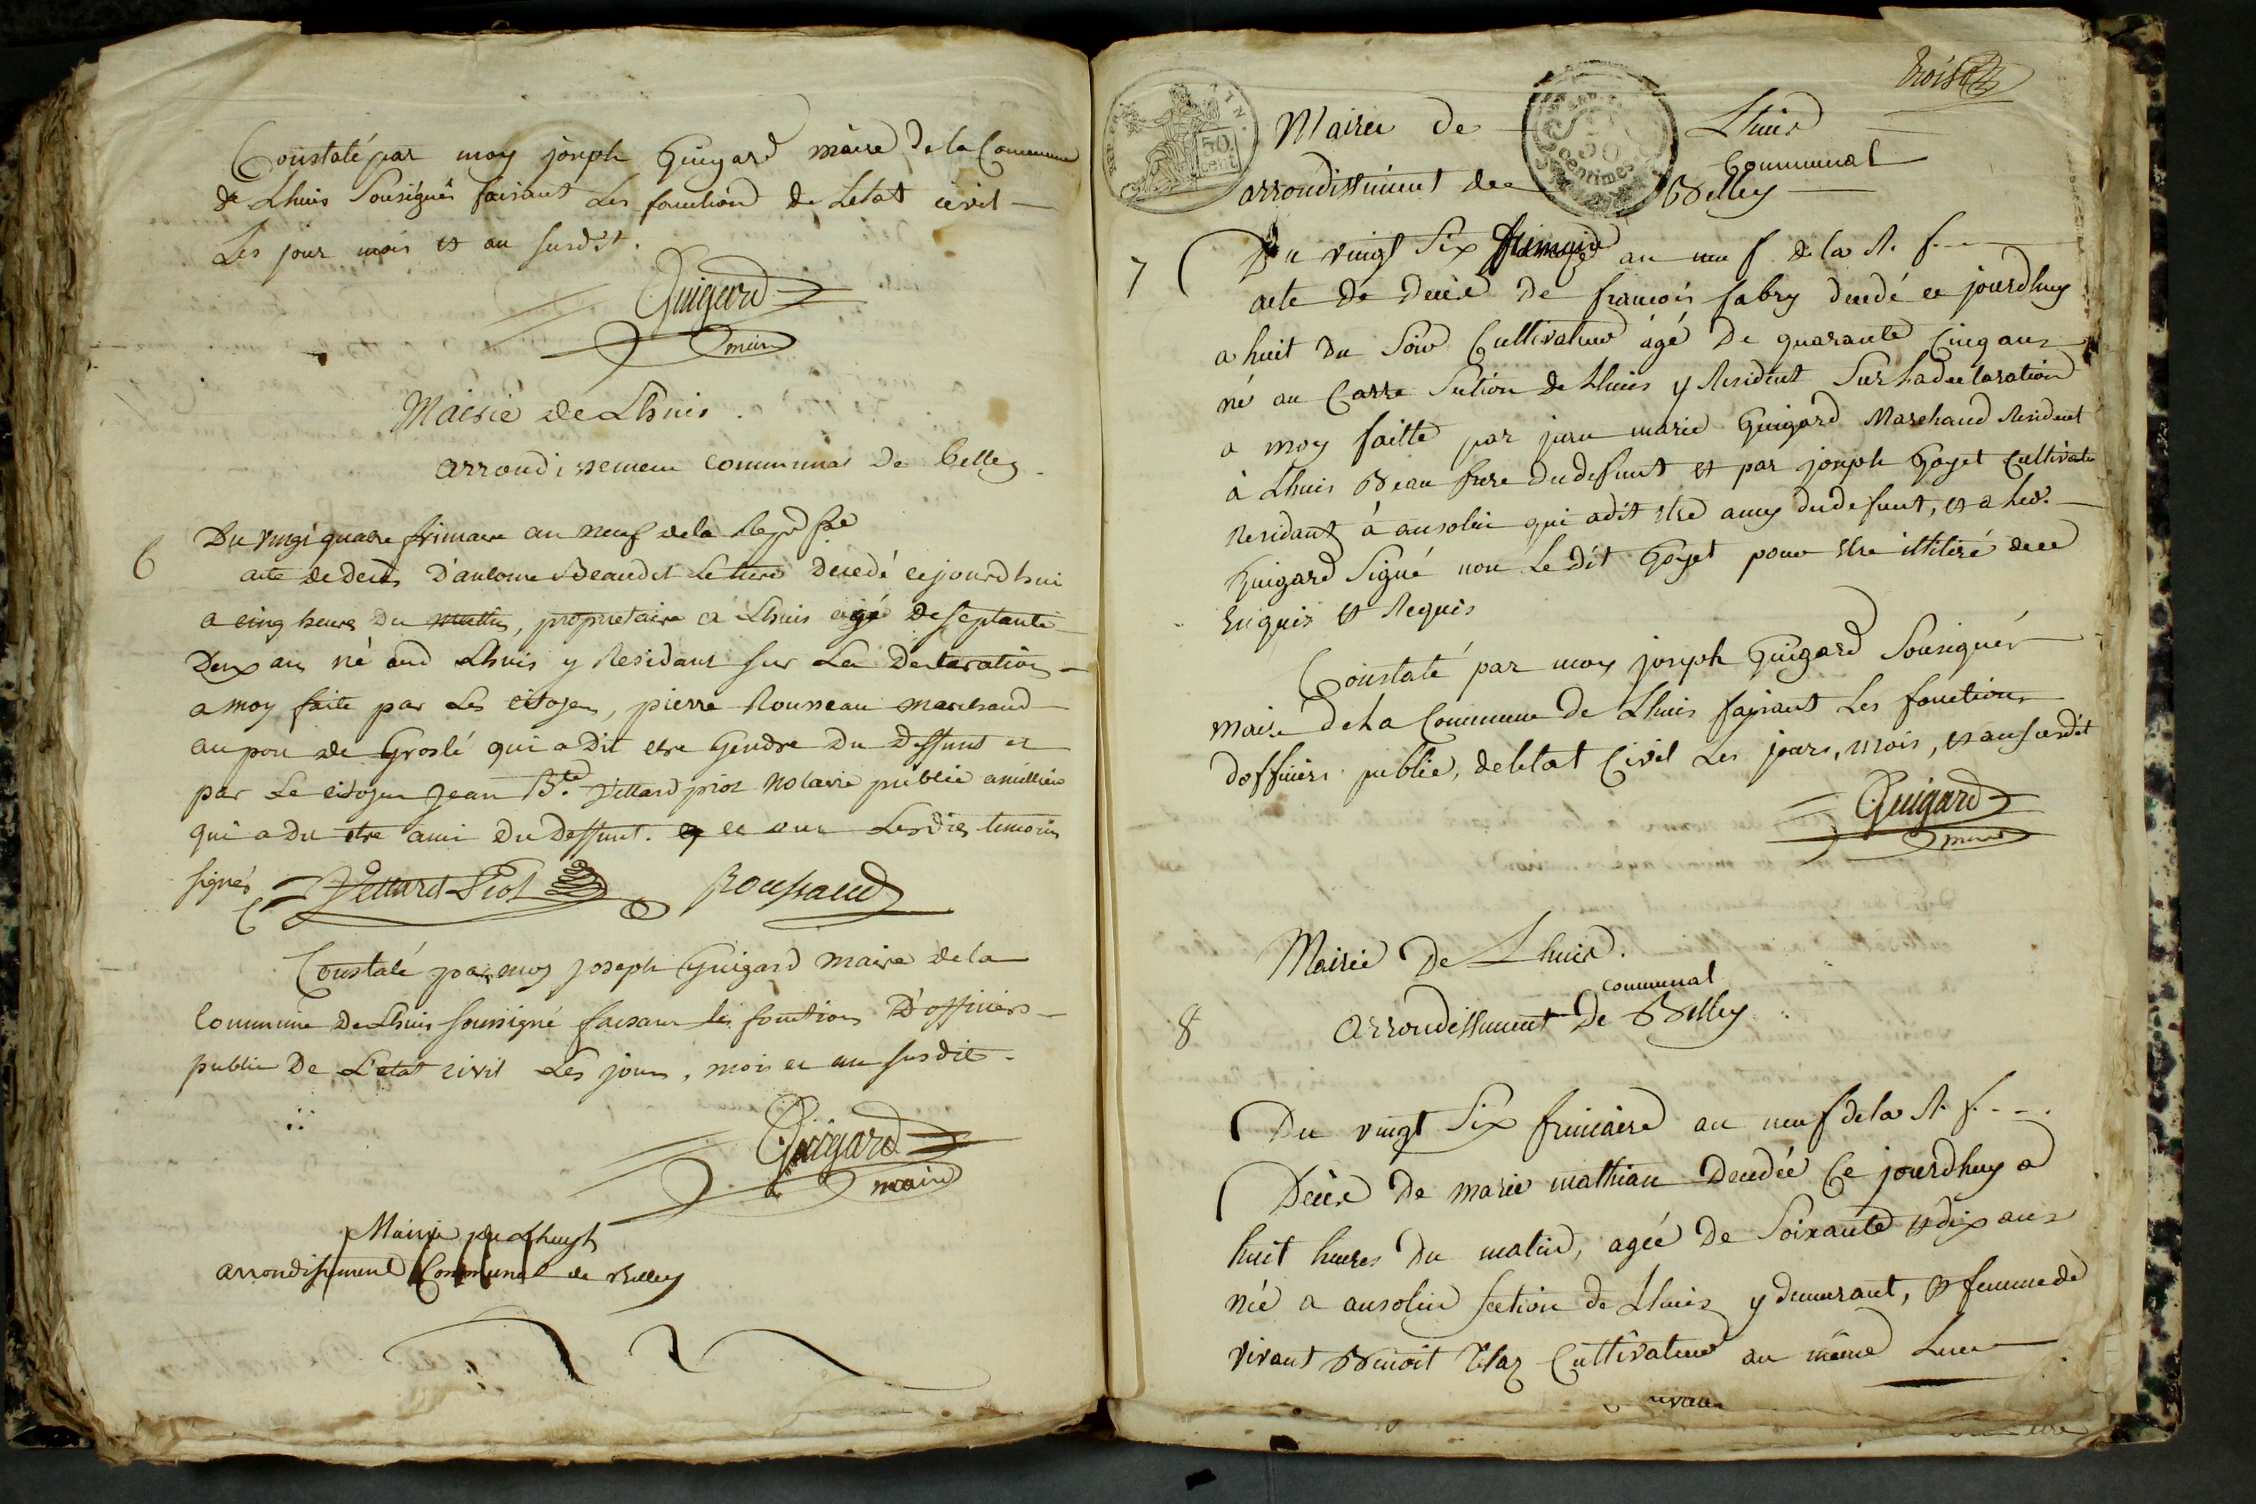 Constaté par moy joseph Guigard maire de la Commune
de Lhuis Sousignés faisant Les fonction de Letat civil
Les jour mois et an susdit.
Guigard
maire
Mairie de Lhuis.
arrondissement communal de Belley
6
Du vingt quatre frimaire an neuf de la Rep. fse
acte de deces d'antoine Beaudet decedé cejourdhui
a cinq heures du mattin, proprietaire a Lhuis agé de septante
Deux ans né aud Lhuis y Residant sur La Declaration
a moy faite par Les citoyen, pierre Rousseau marchand
au por de Groslé qui a Dit etre Gendre Du Deffunt et
par Le citoyen Jean Bte Vettard piot Notaire public
qui a dit etre ami Du Deffunt. et ont Lesdits temoins
signés
Vettard Piot
Roussaud
Constaté par moy Joseph Guigard maire de la
Commune de Lhuis soussigné faisant les fonctions D'officiers
public De L'etat civil Les jour, mois et an susdit.
Guigard
maire
Mairie de Lhuys
arrondissement Communal de Belley
trois
REP. FRA.
50 cent
50
centimes
Mairie de Lhuis
Communal
arrondissement de Belley
7
Du vingt Six frimaire an neuf de la R. f.
acte de Decés de françois fabry decedé ce jourdhuy
a huit du Soir Cultivateur àgé de quarante Cinq ans
né au Carre Section de Lhuis y Resident Sur La declaration
a moy faitte par jean marie Guigard Marchand Resident
à Lhuis Beau frere du defunt et par joseph Goyet Cultivate
Residant à ansolin qui a dit etre amy du defunt, et a led.
Guigard Signé non Le dit Goyet pour etre illitéré de ce
Enquis et Requis
Constaté par moy joseph Guigard Sousignér
maire de La Commune de Lhuis faisant Les fonctions
dofficiers public, de letat Civil Les jours, mois, et an susdit
Guigard
maire
Mairie De Lhuis.
communal
8
Arrondissement De Belley
Du vingt Six frimaire an neuf de la R. f.
Décés De marie mathian Decedée Ce jourdhuy a
huit heures Du matin, agée De Soixante et dix ans
née a ansolin section de Lhuis y demurant, et femme de
vivant Benoit Cultivateur au même Lieu